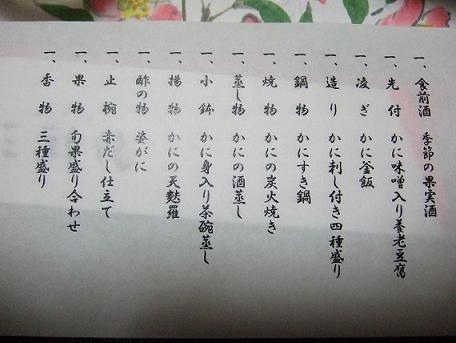 一、食前酒 季節の果実酒
一、先付 かに味噌入り養老豆腐
一、凌ぎ かに釜飯
一、造り かに刺し付き四種盛り
一、鍋物 かにすき鍋
一、焼物 かにの炭火焼き
一、蒸し物 かにの酒蒸し
一、小鉢 かに身入り茶碗蒸し
一、揚物 かにの天麩羅
一、酢の物 姿がに
一、止椀 赤だし仕立て
一、果物 旬果盛り合わせ
一、香物 三種盛り